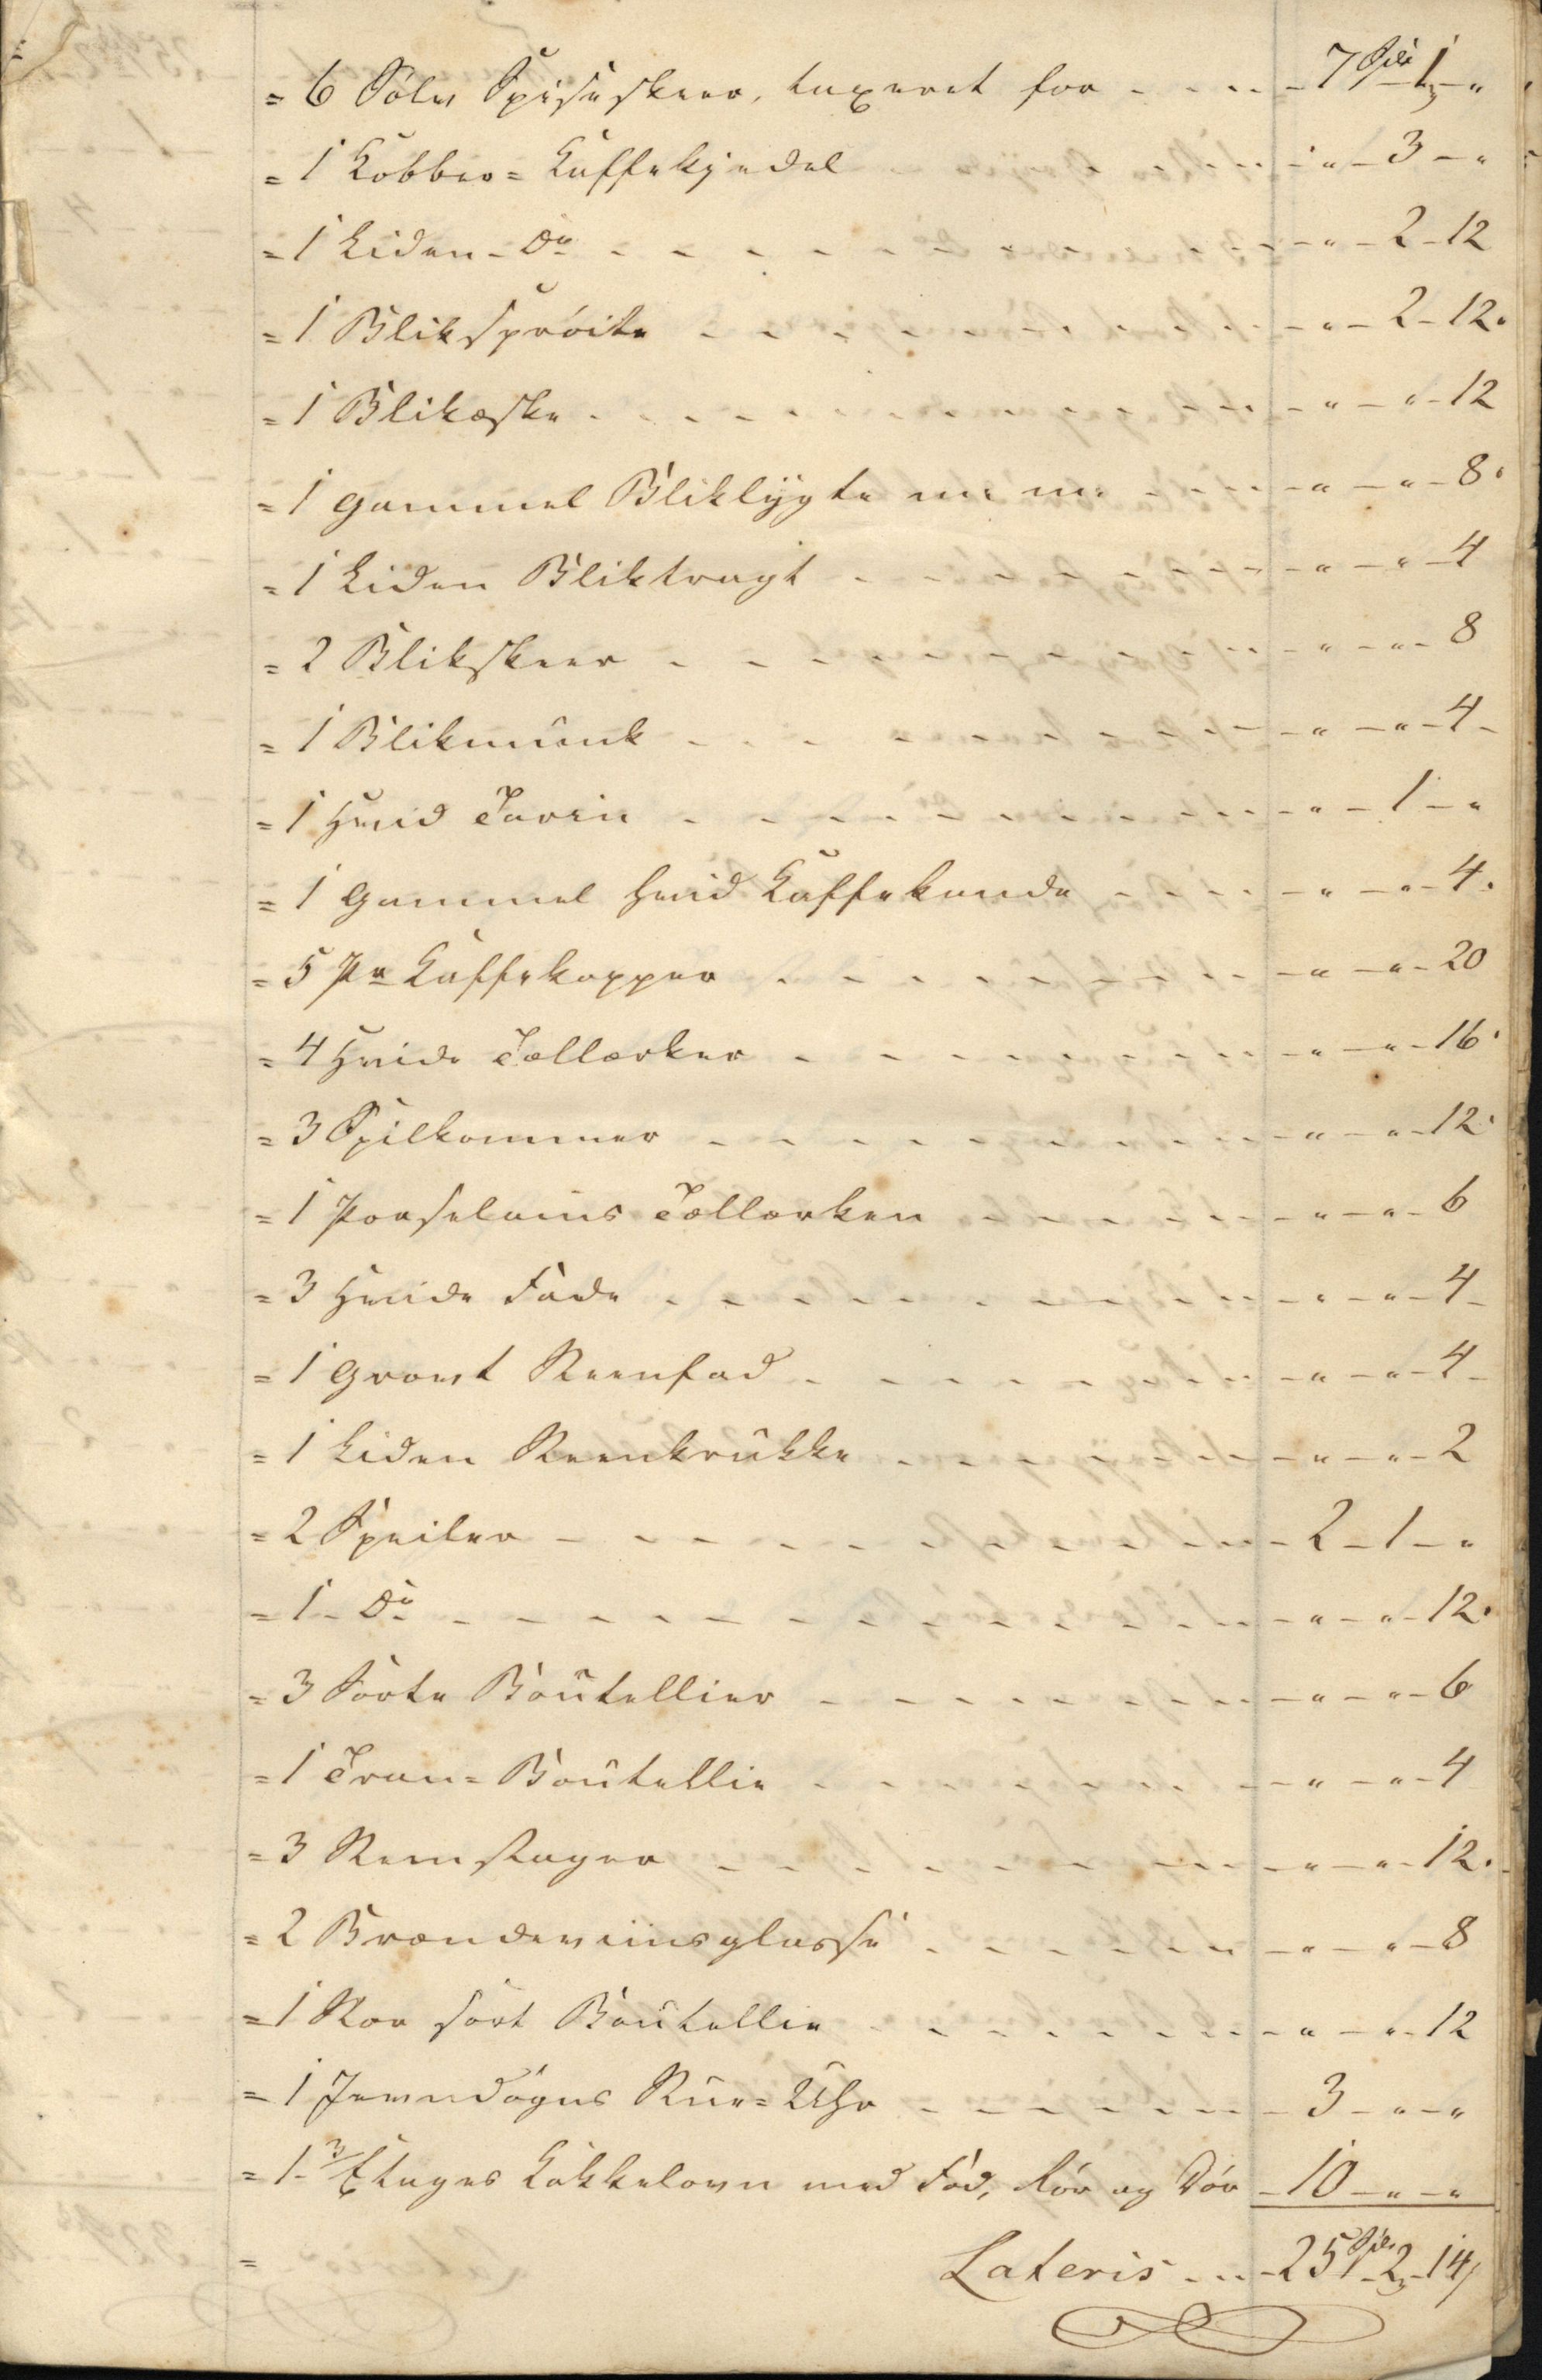 = 6 Sölv Spiseskeer, taxeret for - - - - 7 Spd 1 - "
= 1 Kobber = Kaffekjedel - " - 3 - "
= 1 Liden - Do - - - - - " - 2 - 12
= 1 Bliksprøite - - - - - " - 2 - 12.
= 1 Blikæske - - - - - " - " - 12
= 1 gammel Bliklygte m: m: - - - " - " - 8.
= 1 Liden Bliktragt - - - - " - " - 4
= 2 Blikskeer - - - - " - " - 8
= 1 Blikmunk - - - - " - " - 4 -
= 1 Hvid Tarin - - - - " - 1 - "
= 1 gammel hvid Kaffekande - - - " - " - 4.
= 5 Pr Kaffekopper - - - - " - " - 20
= 4 Hvide Tællerker - - - - " - " - 16.
= 3 Spilkommer - - - - " - " - 12.
= 1 Porselains Tællerken - - - - " - " - 6
= 3 Hvide Fade - - - - " - " - 4 -
= 1 Grovt Steenfad - - - - " - " - 4 -
= 1 Liden Steenkrukke - - - - " - " - 2
= 2 Speiler - - - - 2 - 1 - "
= 1 - Do - - - - " - " - 12.
= 3 Sorte Boutellier - - - - " - " - 6
= 1 Tran = Boutellie - - - - " - " - 4
= 3 Stager - - - - " - " - 12.
= 2 Brændeviinsglasse - - - - " - " - 8
= 1 Stor sort Boutellie - - - - " - " - 12
= 1 Stue = Uhr - - - - 3 - " - "
= 1 - 3 Etages Kakkelovn med Fod, Rör og Dör - 10 - " - "
= Lateris - - - 25 Spd 2 - 14